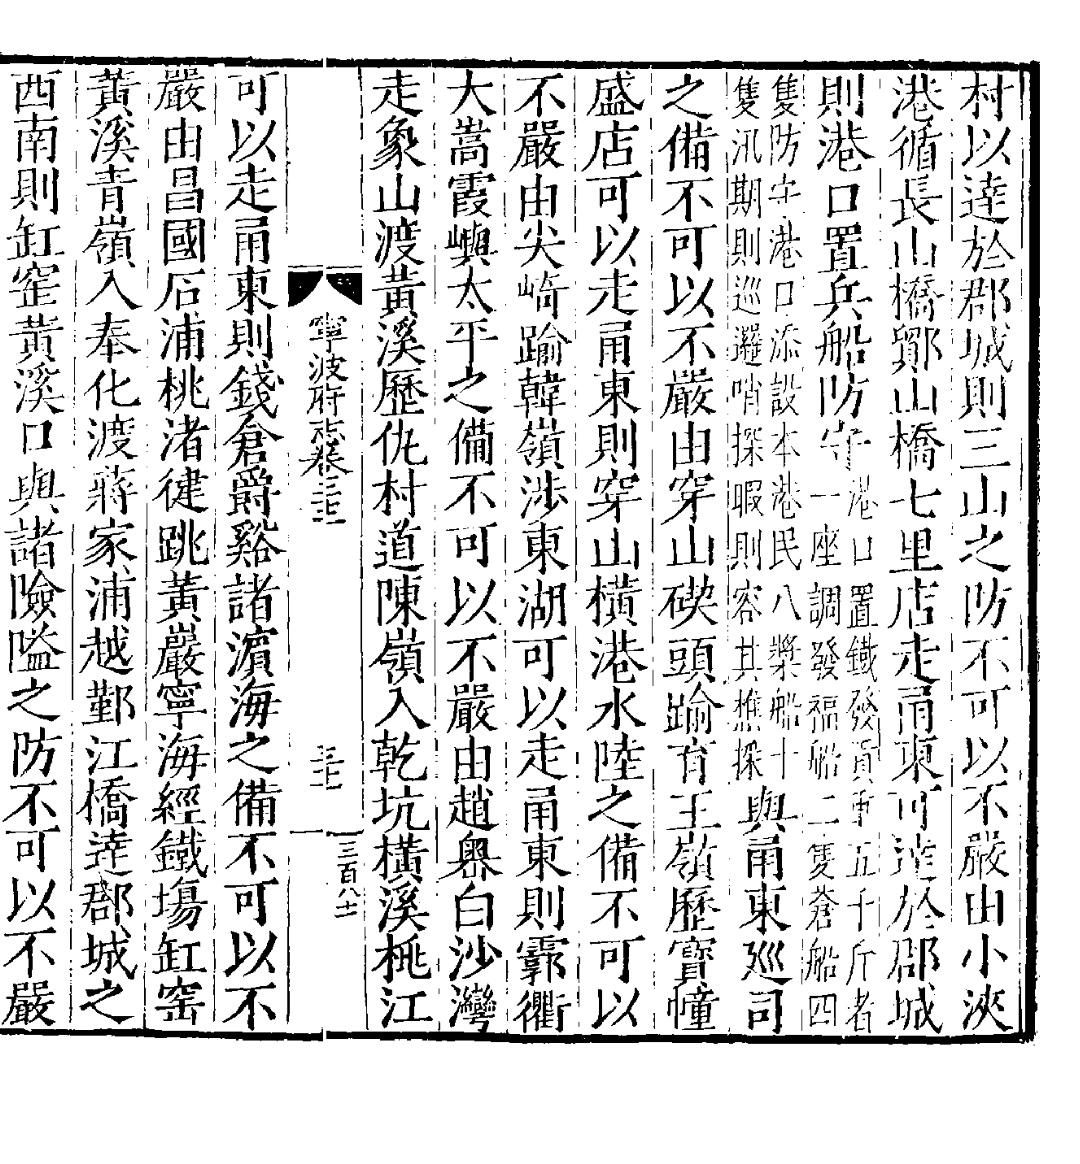 村以達於郡城則三山之防不可以不嚴由小浹
港循長山橋鄮山橋七里店走甬東可達於郡城
則港口置兵船防守港口置鐵發貢重五千斤者
一座調發福船二隻蒼船四
隻防守港口添設本港民八槳船十
隻汛期則巡邏哨探暇則容其樵採與甬東廵司
之備不可以不嚴由穿山碶頭踰育王嶺歷寳幢
盛店可以走甬東則穿山橫港水陸之備不可以
不嚴由尖崎踰韓嶺涉東湖可以走甬東則霩衢
大嵩霞嶼太平之備不可以不嚴由趙嶴白沙灣
走象山渡黃溪歷仇村道陳嶺入乾坑橫溪桃江
寧波府志卷
三百八十
可以走甬東則錢倉爵谿諸濵海之備不可以不
嚴由昌國石浦桃渚健跳黃巖寧海經鐵塲缸窑
黃溪青嶺入奉化渡蔣家浦越鄞江橋達郡城之
西南則缸窑黃溪口與諸險隘之防不可以不嚴